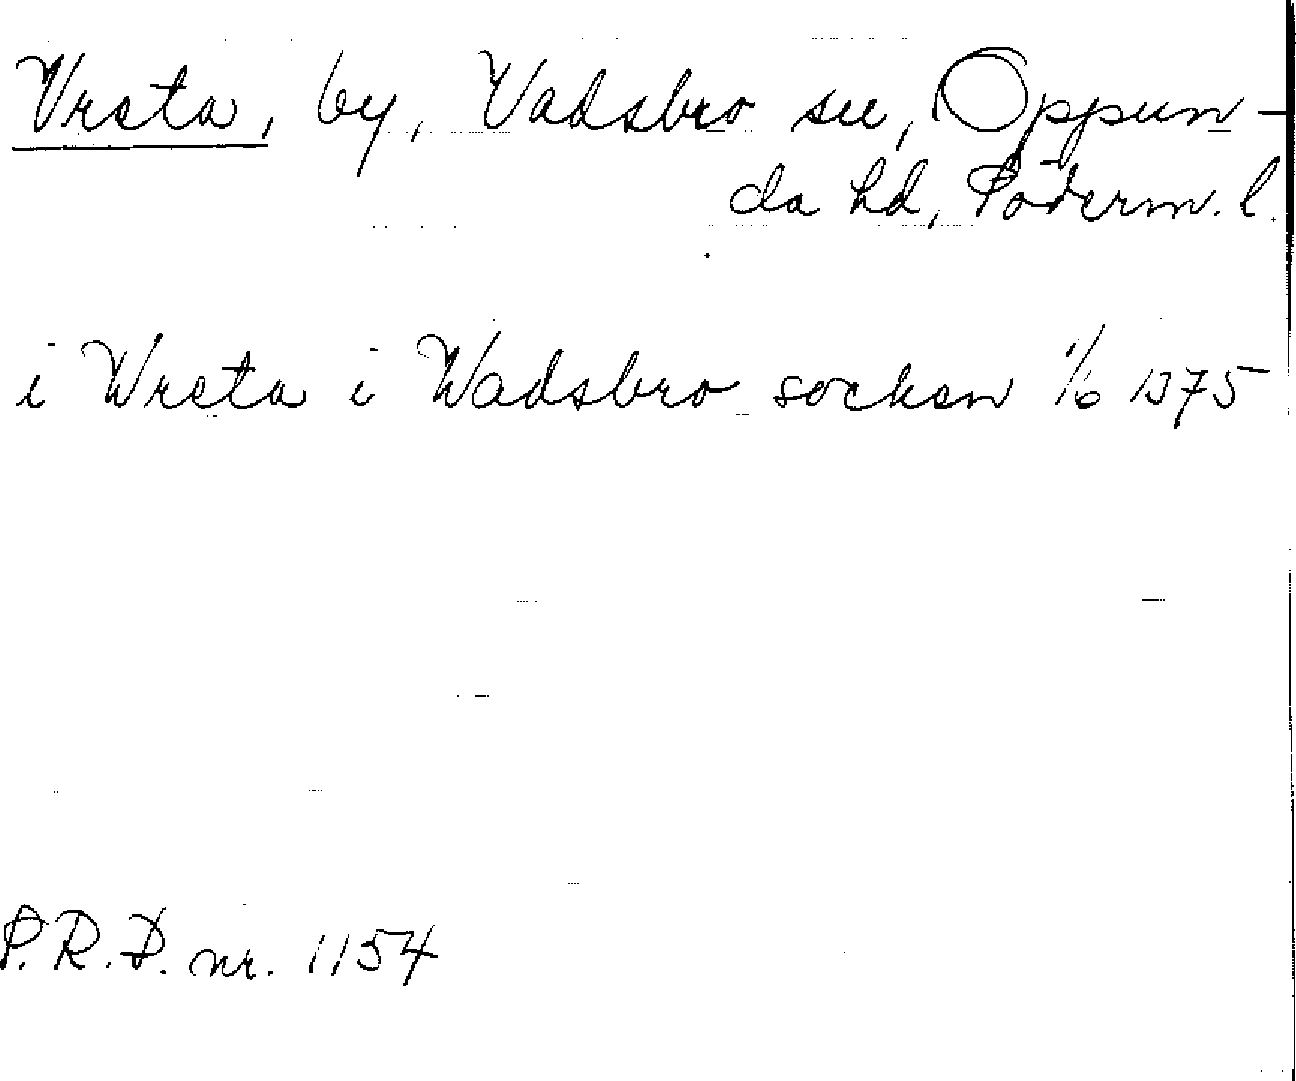 Vreta, by, Vadsbro sn, Oppun-
da hd, Söderm. l.
i Wreta i Wadsbro socken 1/6 1375
S.R.P. nr. 1154